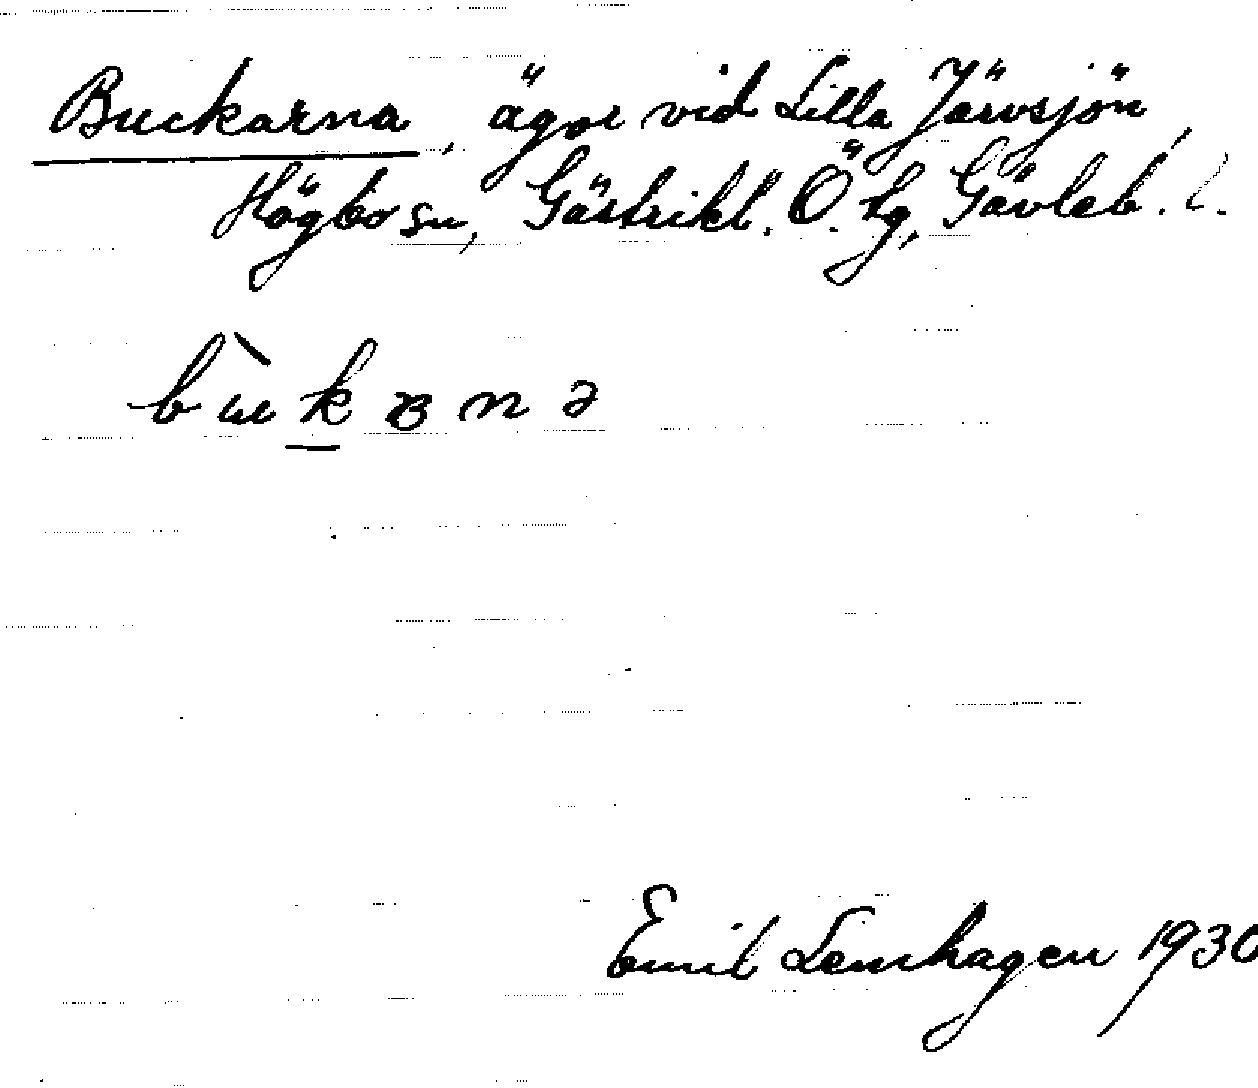 Buckarna, ägor vid Lilla Järvsjön,
Högbo sn, Gästrikl. Ö. tg, Gävleb. l.
bùkɐnə
Emil Lenhagen 1930